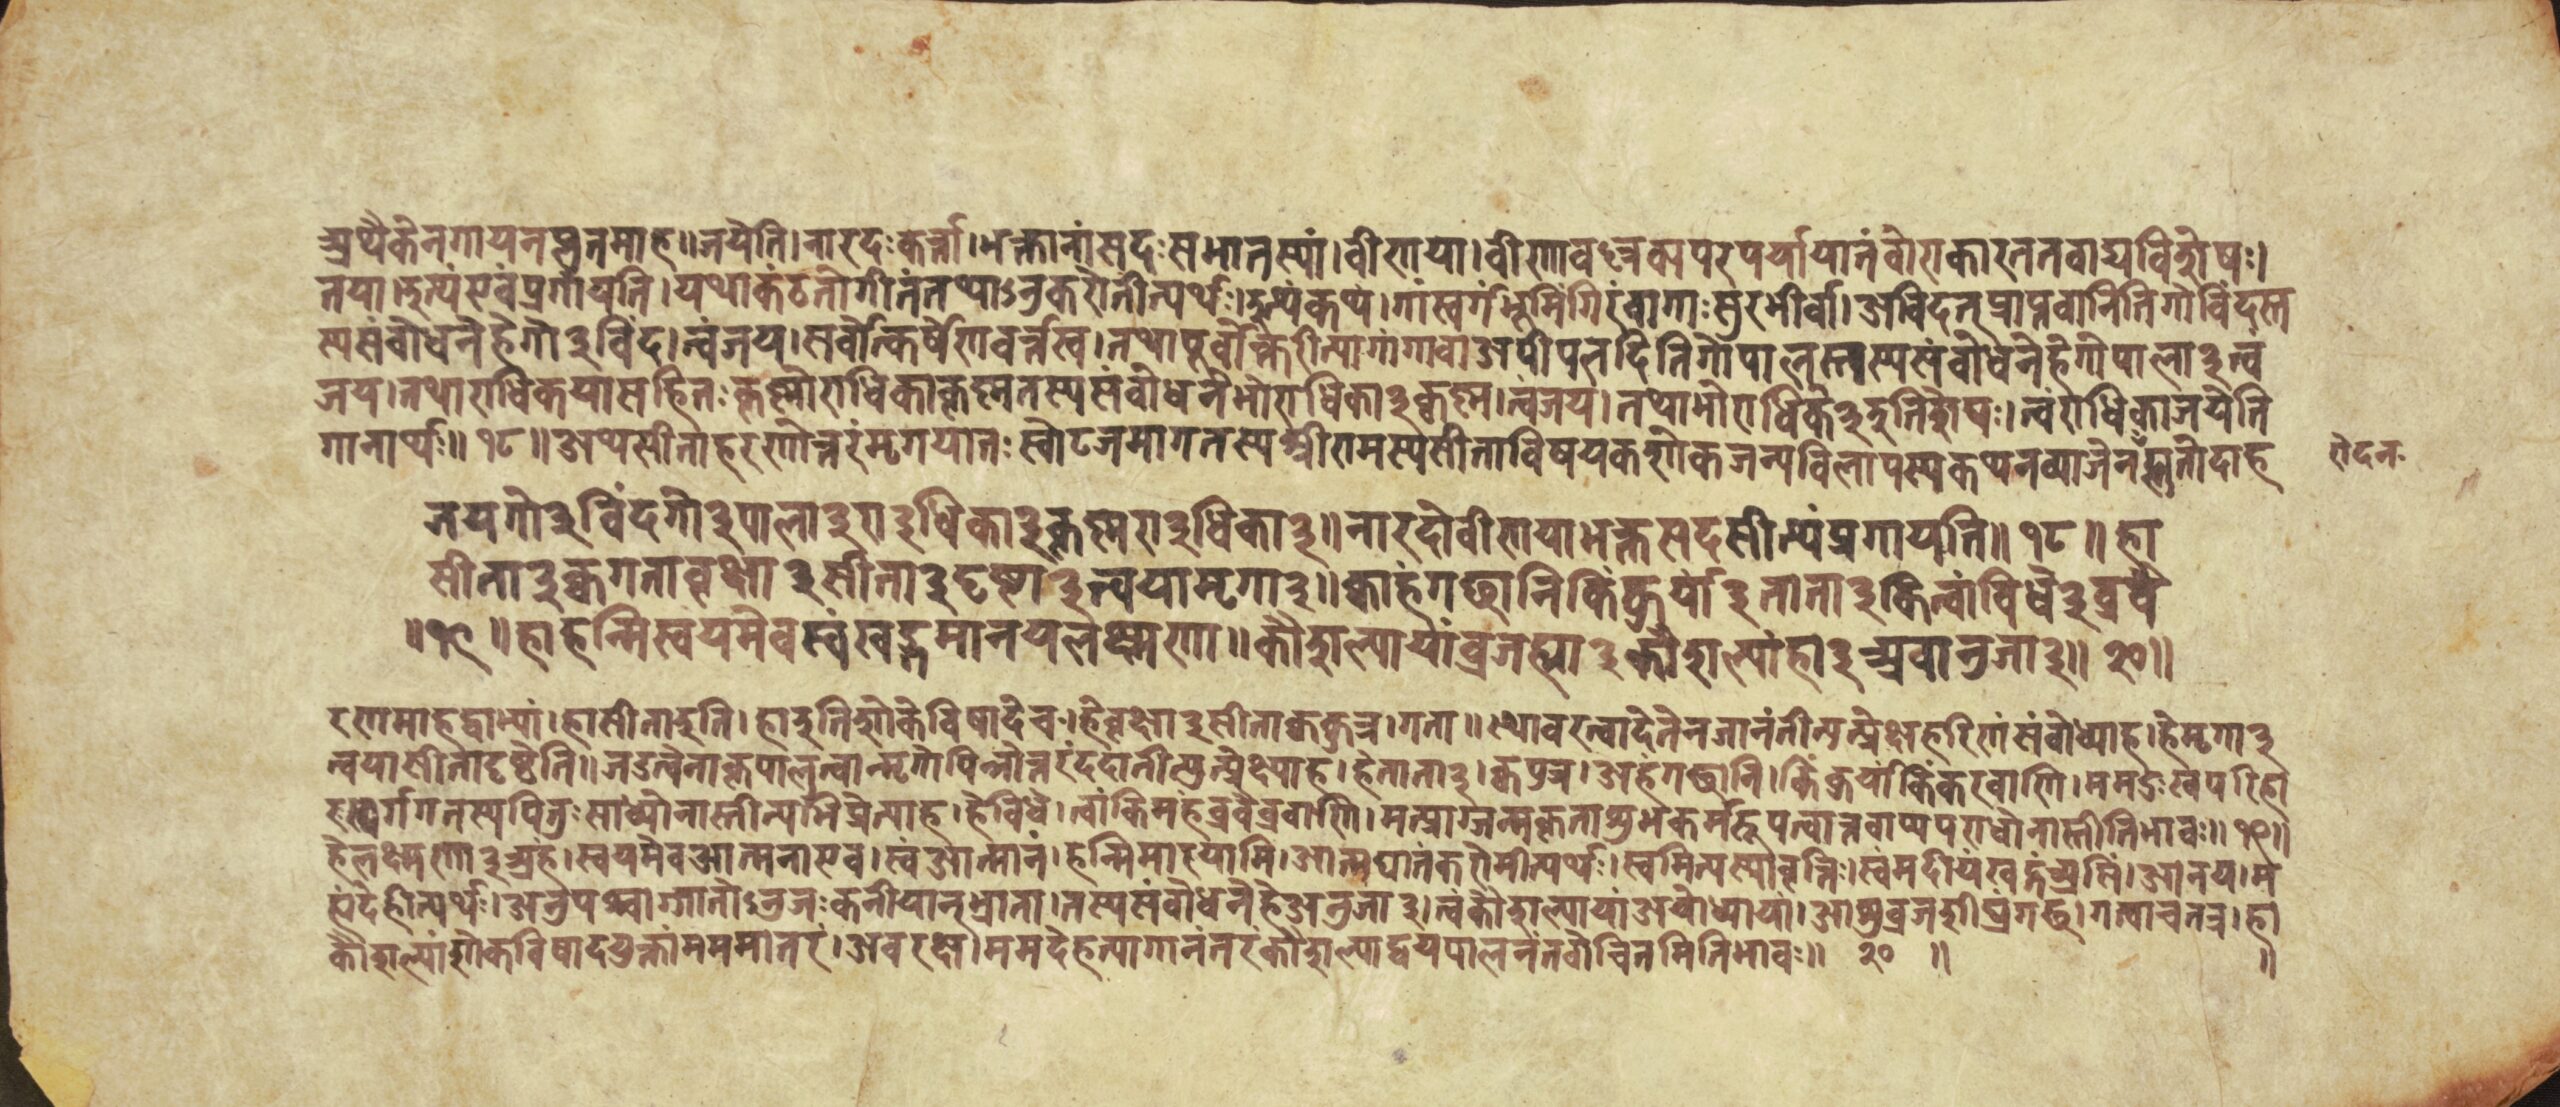 अथैकेनगायनप्लुतमाह॥जयेति।नारदःकर्त्ता।भक्तानांसदःसभातस्यां।वीणाया।वीणावल्लक्यपरपर्यायानंवीणकारततवाद्यविशेषः।
तया।इत्यंएवंप्रगायति।यथाकंठतोगीतंतथाऽनुकरोतीत्यर्थः।इत्थंकथं।गांस्वर्गंभूमिंगिरंवागाःसुरभीर्वा।अविदत्प्राप्तवानितिगोविंदस्त
स्यसंबोधनेहेगो३विंद।त्वंजय।सर्वोत्कर्षेणवर्त्तस्व।तथापूर्वोक्तरीत्यागांगावाअपीपलदितिगोपालस्तस्यसंबोधनेहेगोपाला३त्वं
जय।तथाराधिकयासहितःकृष्णोराधिकाकृष्णतस्यसंबोधनेभोराधिका३कृष्ण।त्वंजय।तथाभोराधिके३इतिशेषः।त्वंराधिकाजयेति
गानार्थः॥१८॥अथसीताहरणोत्तरंमृगयातःस्वोटजमागतस्यश्रीरामस्यसीताविषयकशोकजन्यविलापस्यकथनव्याजेनप्लुतोदाह
रोदन
जयगो३विंदगो३पाला३रा३धिका३कृष्णरा३धिका३॥नारदोवीणयाभक्तसदसीत्थंप्रगायति॥१८॥हा
सीता३क्वगतावृक्षा३सीता३दृष्टा३त्वयामृगा३॥क्वाहंगछानिकिंकुर्यां३ताता३किंत्वांविधे३ब्रवै
॥१९॥हाहन्मिस्वयमेवस्वंखड्गमानयलक्ष्मण॥कौशल्यायांव्रजह्या३कौशल्यांहा३अवानुजा३॥२०॥
रणमाहद्वाभ्यां।हासीता३इति।हा३इतिशोकेविषादेच।हेवृक्षा३सीताक्वकुत्र।गता॥स्थावरत्वादेतेनजानंतीत्युत्प्रेक्ष्यहरिणंसंबोध्याह।हेमृगा३
त्वयासीतादृष्टेति॥जडत्वेनाकृपालुत्वान्मृगोपिनोत्तरंददातीत्युत्प्रेक्ष्याह।हेताता३।क्वपुत्र।अहंगछानि।किंकुर्यांकिंकरवाणि।ममदुःखपरिहा
रःस्वर्गगतस्यपितुःसाध्योनास्तीत्यभिप्रेत्याह।हेविधे।त्वांकिमहंब्रवैब्रवाणि।मत्प्राग्जन्मकृताशुभकर्मरूपत्वात्तवाप्यपराधोनास्तीतिभावः॥१९॥
हेलक्ष्मणा३अहं।स्वयमेवआत्मनाएव।स्वंआत्मानं।हन्मिमारयामि।आत्मघातंकरोमीत्यर्थः।स्वमित्यस्यावृत्तिः।स्वंमदीयंखड्गंअसिं।आनय।म
ह्यंदेहीत्यर्थः।अनुपश्चाज्जातोऽनुजःकनीयान्भ्राता।तस्यसंबोधनेहेअनुजा३।त्वंकौशल्यायांअयोध्यायां।आशुव्रजशीघ्रंगछ।गत्वाचतत्र।हा
कौशल्यांशोकविषादयुक्तांमममातरं।अवरक्ष।ममदेहत्यागानंतरंकौशल्याद्वयपालनंतवोचितमितिभावः॥२०॥ ॥